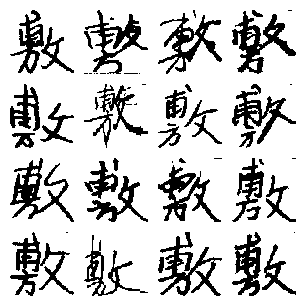 敷敷敷敷
敷敷敷敷
敷敷敷敷
敷敷敷敷